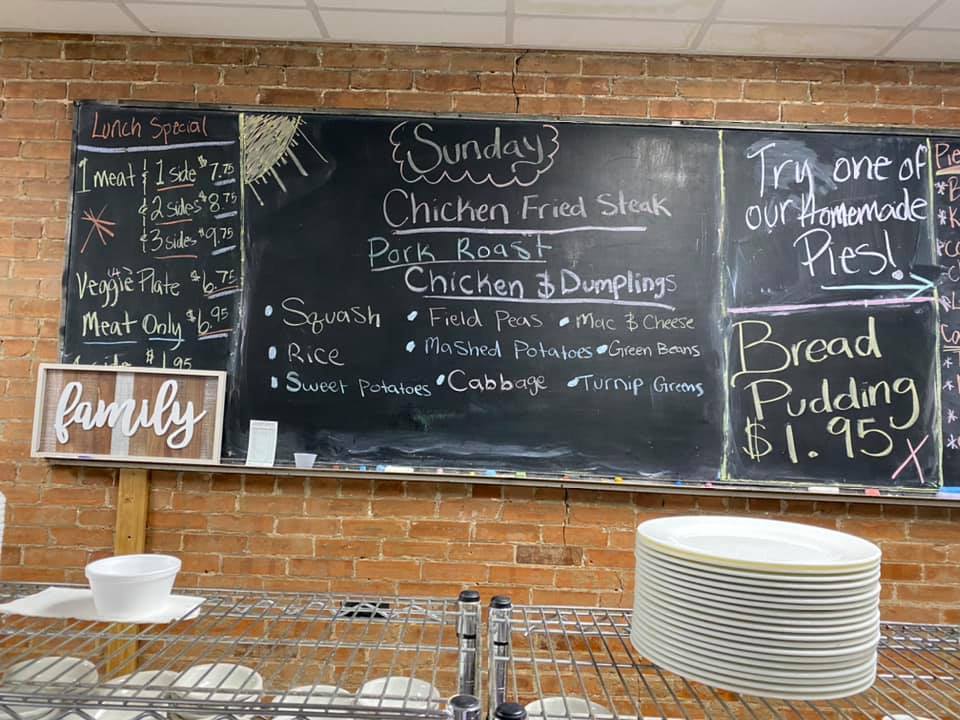 Lunch Special
1 meat & 1 side $7.75
& 2 sides $8.75
& 3 sides $9.75
Veggie Plate $6.75
Meat Only $6.95
$1.95
family
Sunday
Chicken Fried Steak
Pork Roast
Chicken & Dumplings
• Squash • Field Peas • Mac & Cheese
• Rice • Mashed Potatoes • Green Beans
• Sweet Potatoes • Cabbage • Turnip Greens
Try one of
our Homemade
Pies!
Bread
Pudding
$1.95